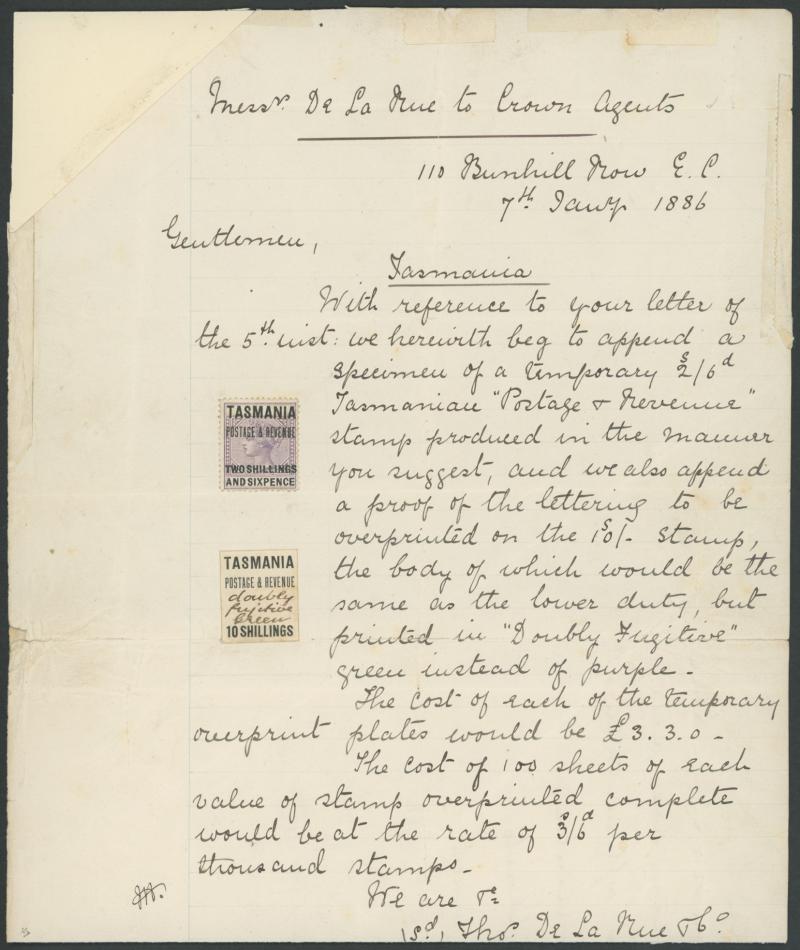 Messrs. De La Rue to Crown Agents
110 Bunhill Row E.C.
7th Jany 1886
Gentlemen,
Tasmania
With reference to your letter of
the 5th inst: we herewith beg to append a
specimen of a temporary 2s/6d
Tasmanian "Postage & Revenue"
stamp produced in the manner
you suggest, and we also append
a proof of the lettering to be
overprinted on the 10s/- stamp,
the body of which would be the
same as the lower duty, but
printed in "Doubly Fugitive"
green instead of purple.
TASMANIA
POSTAGE & REVENUE
TWO SHILLINGS
AND SIXPENCE
TASMANIA
POSTAGE & REVENUE
doubly
fugitive
Green
10 SHILLINGS
The cost of each of the temporary
overprint plates would be £3.3.0 -
The cost of 100 sheets of each
value of stamp overprinted complete
would be at the rate of 3s/6d per
thousand stamps -
We are &c
(sd) Thos. De La Rue & Co